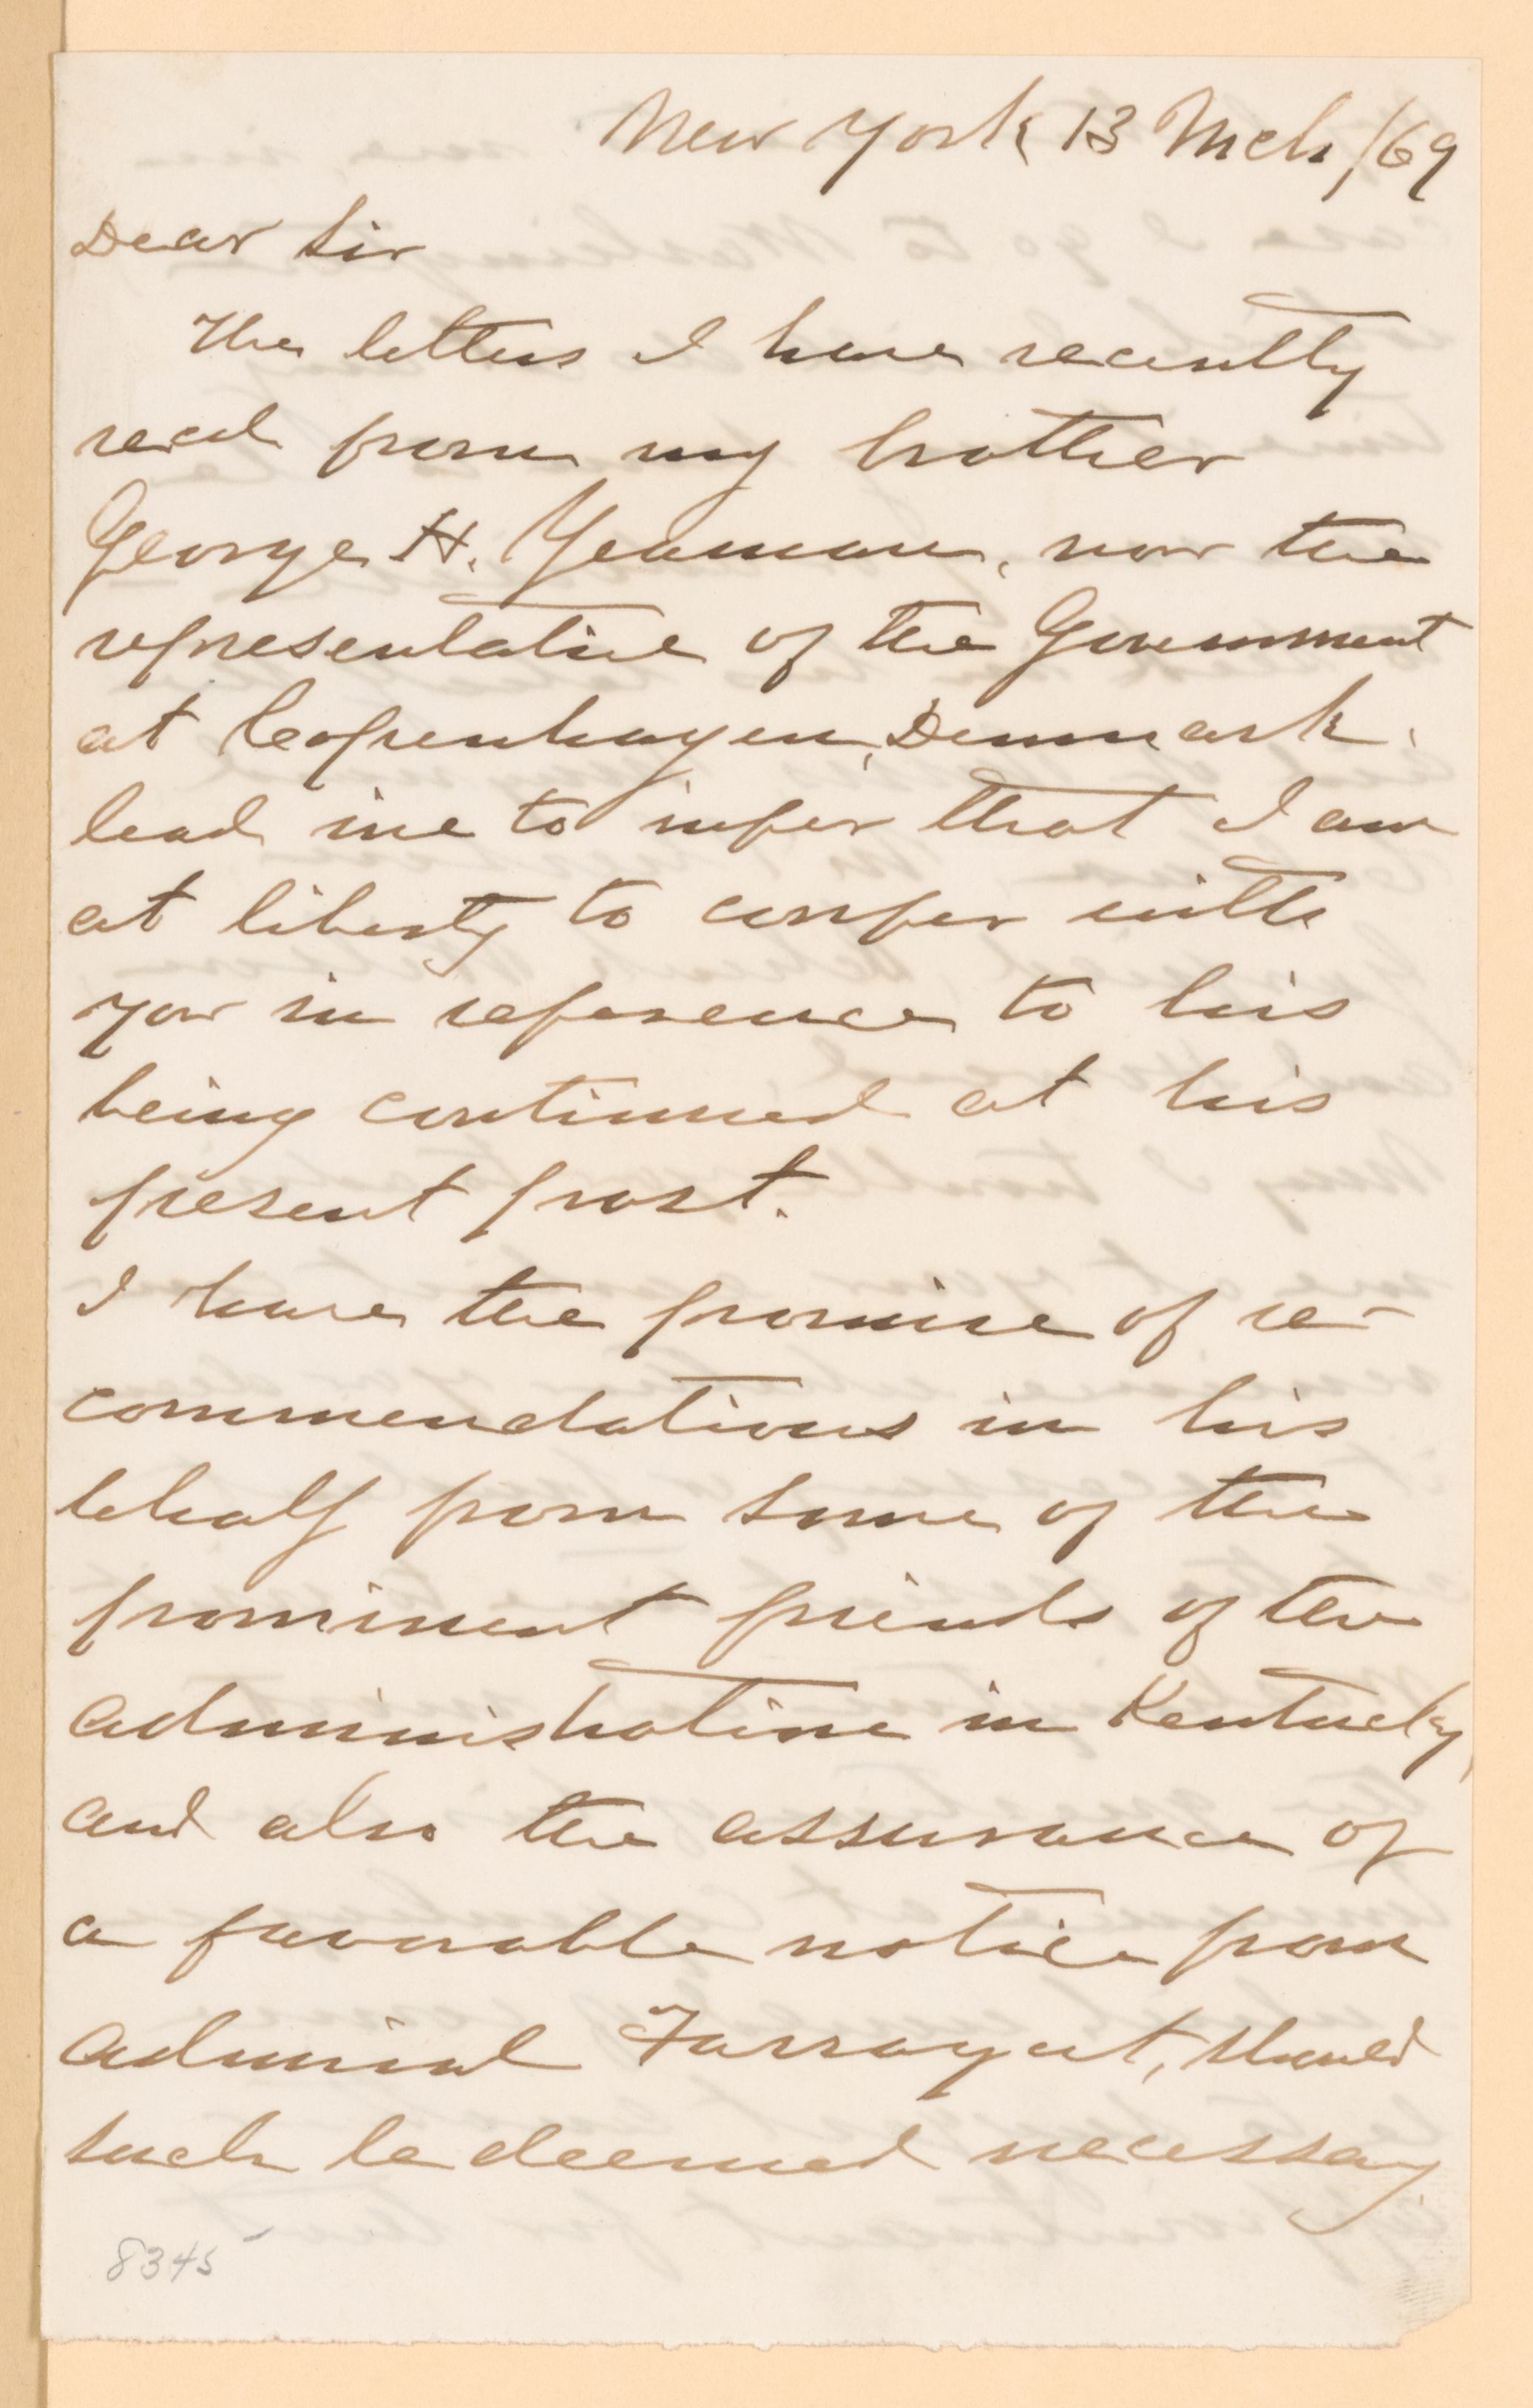 New York 13 Mch /69
Dear Sir
The letters I have recently
recd from my brother
George H. Yeaman, now the
representative of the Government
at Copenhagen, Denmark,
lead me to infer that I am
at liberty to confer with
you in reference to his
being continued at his
present post.
I have the promise of re-
commendations in his
behalf from some of the
prominent friends of the
administration in Kentucky,
and also the assurance of
a favorable notice from
Admiral Farragut, should
such be deemed necessary
8345